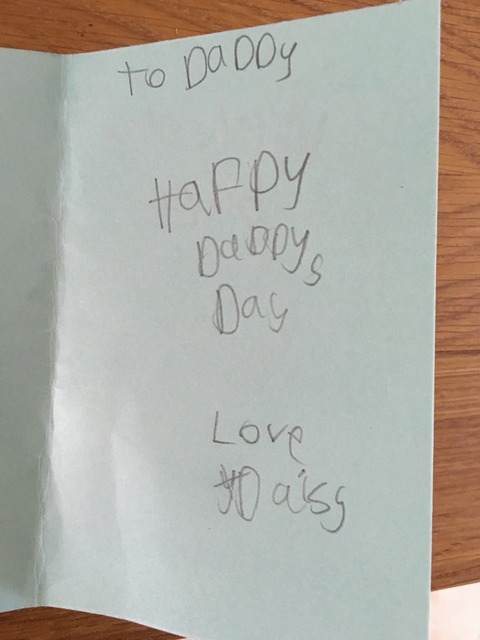 to DaDDy
HaPPy
DaDDys
Day
Love
Daisy